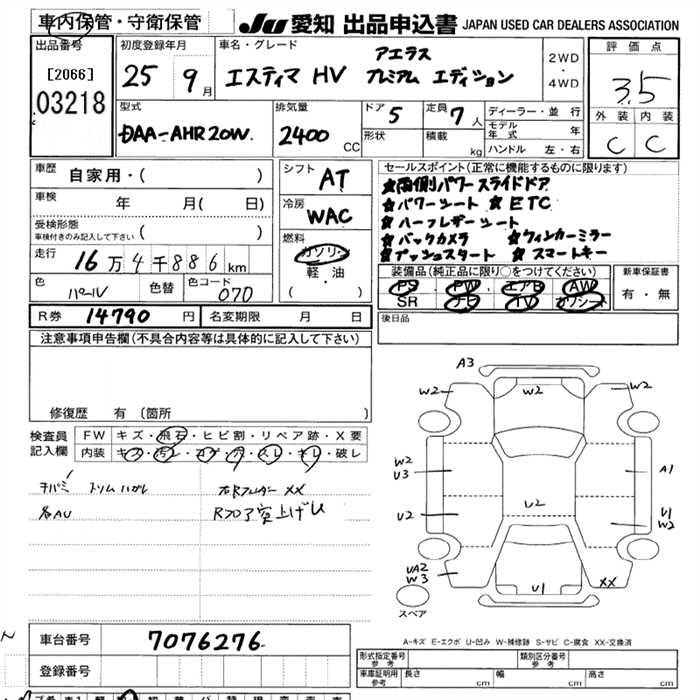 車内保管・守衛保管 JU 愛知 出品申込書 JAPAN USED CAR DEALERS ASSOCIATION
出品番号 初度登録年月 車名・グレード 評価点
[2066] 25年 9月 エスティマ HV アエラス プレミアム エディション 2WD・4WD 3.5
03218 外装 内装
型式 排気量 ドア 5 定員 7人 ディーラー・並行 C C
DAA-AHR20W 2400CC 形状 積載 kg モデル年式 年
ハンドル 左・右
車歴 自家用・( ) シフト AT セールスポイント(正常に機能するものに限ります)
車検 年 月( 日) 冷房 WAC ★両側パワースライドドア
★パワーシート ★ETC
受検形態 車検付きのみ記入して下さい ( ) ★ハーフレザーシート
走行 16万4千886km 燃料 ガソリン ★バックカメラ ★ウィンカーミラー
軽・油 ★プッシュスタート ★スマートキー
色 パール 色替 色コード 070 ( )
装備品(純正品に限り○をつけてください) 新車保証書
PS PW エアB AW 有・無
SR ナビ TV カワシート
R券 14790円 名変期限 月 日 後日品
注意事項申告欄(不具合内容等は具体的に記入して下さい)
修復歴 有 (箇所
検査員記入欄 FW キズ・飛石・ヒビ割・リペア跡・X要
内装 キズ・汚レ・コゲ・穴・スレ・キレ・破レ
トリムハガレ 右Rフェンダー XX
各AU Rフロア突上げU
A3
W2 W2 W2
W2 U3 A1
U2 U2 U1 W2
UA2 W3 U1 XX
スペア
A-キズ E-エクボ U-凹み W-補修跡 S-サビ C-腐食 XX-交換済
車台番号 7076276
登録番号
形式指定番号 参考 類別区分番号 参考
車庫証明用 参考 長さ cm 幅 cm 高さ cm